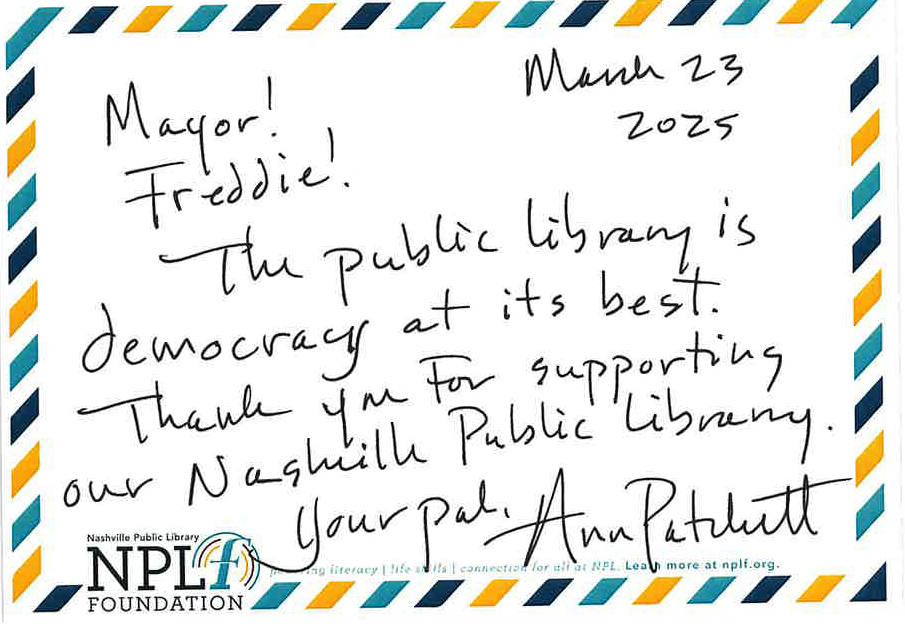 March 23
2025
Mayor!
Freddie!
The public library is
democracy at its best.
Thank you for supporting
our Nashville Public Library.
Your pal, Ann Patchett
Nashville Public Library
NPLf
FOUNDATION
literacy | life skills | connection for all at NPL. Learn more at nplf.org.